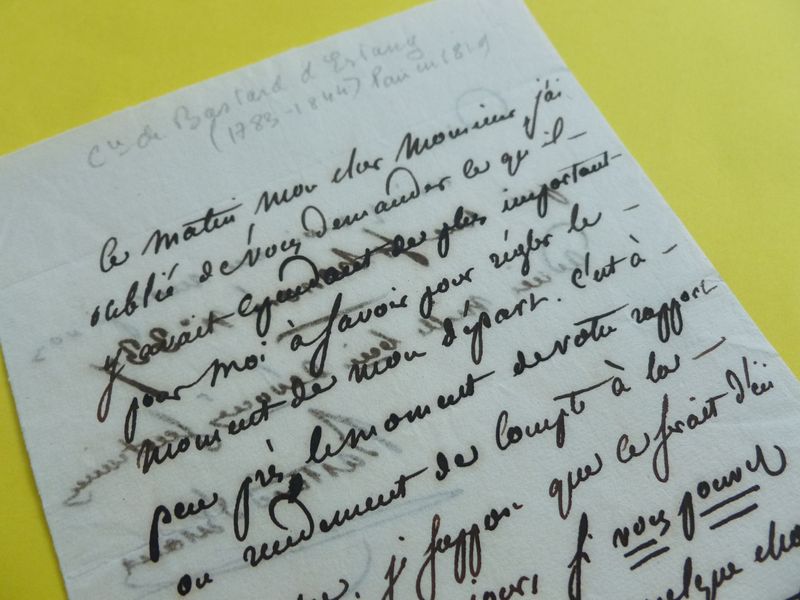 Cte de Bastard d'Estang
(1783-1844) Pair en 1819
ce matin mon cher Monsieur, j'ai
oublié de vous demander ce qu'il
y avait cependant de plus important
pour moi à savoir pour régler le
moment de mon départ. C'est à
peu près le moment de votre rapport
ou rendement de compte à la
j'suppose que ce serait d'ici
jours, si vous pouvez
quelque cho